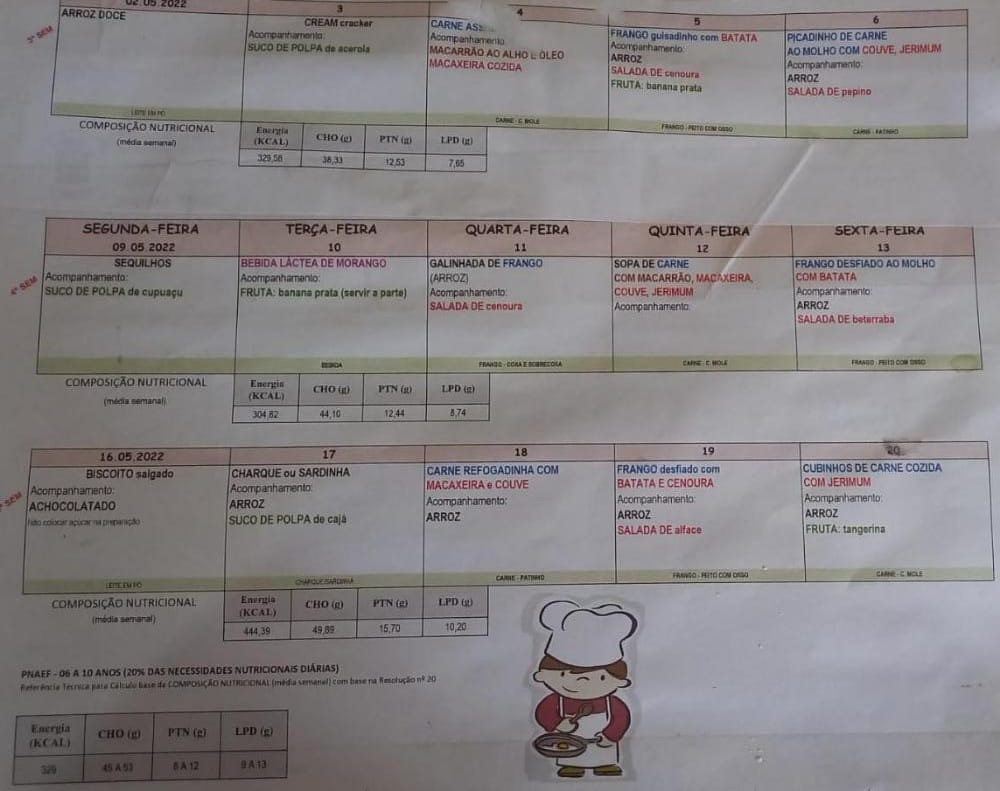 02.05.2022 3 4 5 6
3ª SEM
ARROZ DOCE
LEITE EM PÓ
CREAM cracker
Acompanhamento:
SUCO DE POLPA de acerola
CARNE
Acompanhamento:
MACARRÃO AO ALHO E ÓLEO
MACAXEIRA COZIDA
CARNE - C. MOLE
FRANGO guisadinho com BATATA
Acompanhamento:
ARROZ
SALADA DE cenoura
FRUTA: banana prata
FRANGO - PEITO COM OSSO
PICADINHO DE CARNE
AO MOLHO COM COUVE, JERIMUM
Acompanhamento:
ARROZ
SALADA DE pepino
CARNE - PATINHO
COMPOSIÇÃO NUTRICIONAL
(média semanal)
Energia (KCAL) CHO (g) PTN (g) LPD (g)
329,56 38,33 12,53 7,65
SEGUNDA-FEIRA TERÇA-FEIRA QUARTA-FEIRA QUINTA-FEIRA SEXTA-FEIRA
09.05.2022 10 11 12 13
4ª SEM
SEQUILHOS
Acompanhamento:
SUCO DE POLPA de cupuaçu
BEBIDA LÁCTEA DE MORANGO
Acompanhamento:
FRUTA: banana prata (servir a parte)
BEBIDA
GALINHADA DE FRANGO
(ARROZ)
Acompanhamento:
SALADA DE cenoura
FRANGO - COXA E SOBRECOXA
SOPA DE CARNE
COM MACARRÃO, MACAXEIRA,
COUVE, JERIMUM
Acompanhamento:
CARNE - C. MOLE
FRANGO DESFIADO AO MOLHO
COM BATATA
Acompanhamento:
ARROZ
SALADA DE beterraba
FRANGO - PEITO COM OSSO
COMPOSIÇÃO NUTRICIONAL
(média semanal)
Energia (KCAL) CHO (g) PTN (g) LPD (g)
304,82 44,10 12,44 8,74
16.05.2022 17 18 19 20
SEM
BISCOITO salgado
Acompanhamento:
ACHOCOLATADO
Não colocar açucar na preparação
LEITE EM PÓ
CHARQUE ou SARDINHA
Acompanhamento:
ARROZ
SUCO DE POLPA de cajá
CHARQUE/SARDINHA
CARNE REFOGADINHA COM
MACAXEIRA e COUVE
Acompanhamento:
ARROZ
CARNE - PATINHO
FRANGO desfiado com
BATATA E CENOURA
Acompanhamento:
ARROZ
SALADA DE alface
FRANGO - PEITO COM OSSO
CUBINHOS DE CARNE COZIDA
COM JERIMUM
Acompanhamento:
ARROZ
FRUTA: tangerina
CARNE - C. MOLE
COMPOSIÇÃO NUTRICIONAL
(média semanal)
Energia (KCAL) CHO (g) PTN (g) LPD (g)
444,39 49,89 15,70 10,20
PNAEF - 06 A 10 ANOS (20% DAS NECESSIDADES NUTRICIONAIS DIÁRIAS)
Referência Técnica para Cálculo base da COMPOSIÇÃO NUTRICIONAL (média semanal) com base na Resolução nº 20
Energia (KCAL) CHO (g) PTN (g) LPD (g)
329 45 A 53 8 A 12 9 A 13